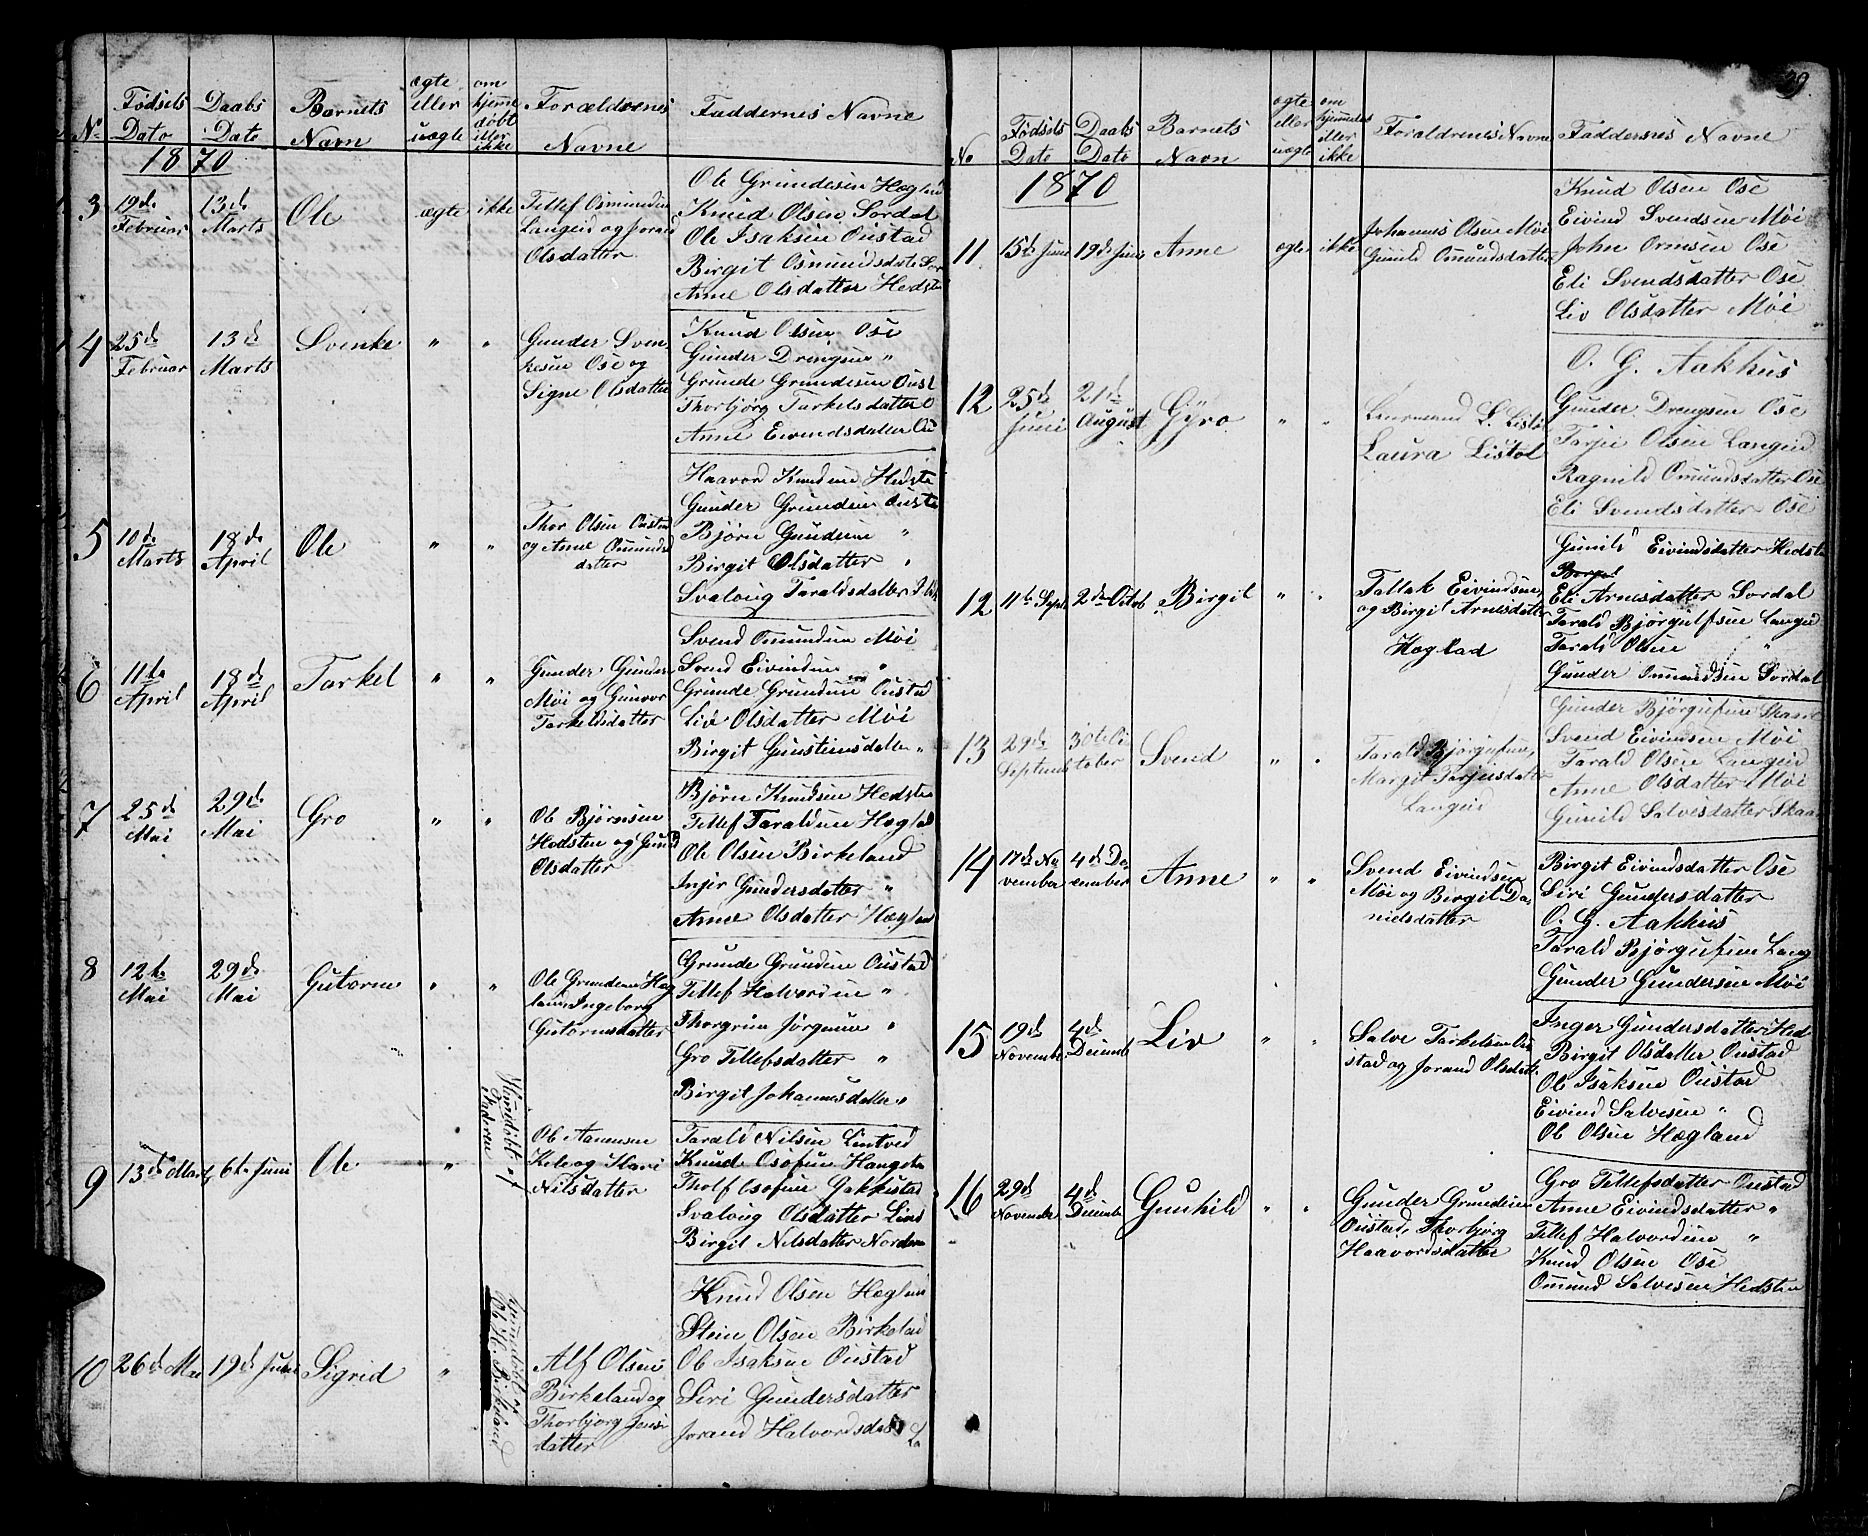 No Fødsels Dato Daabs Dato Barnets Navn ægte eller uægte om hjemmedøbt eller ikke Forældrenes Navne Faddernes Navne
1870
3 19de Februar 13de Marts Ole ægte ikke Tellef Osmundsen
Langeid og Jorand
Olsdatter
Ole Grundesen Hægland
Knud Olsen Sordal
Ole Isaksen Oustad
Birgit Osmundsdatter Sor
Anne Olsdatter Hedsten
4 25de Februar 13de Marts Svenke " "
Gunder Sven-
kesen Ose og
Signe Olsdatter
Knud Olsen Ose
Gunder Drengsen "
Grunde Grundesen Oust
Thorbjørg Tarkelsdatter O
Anne Eivindsdatter Ou
5 10de Marts 18de April Ole " "
Thor Olsen Oustad
og Anne Omunds
datter
Haavord Knudsen Hedste
Gunder Grundesen Ousta
Bjørn Gundersen "
Birgit Olsdatter "
Svaloug Taraldsdatter
6 11te April 18de April Tarkel " "
Gunder Gunders
Møi og Gunvor
Tarkelsdatter
Svend Omundsen Møi
Svend Eivindsen "
Grunde Grundesen Oustad
Liv Olsdatter Møi
Birgit Guttormsdatter "
7 25de Mai 29de Mai Gro " "
Ole Bjørnsen
Hedsten og Gunild
Olsdatter
Bjørn Knudsen Hedsten
Tellef Taraldsen Hægland
Ole Olsen Birkeland
Injer Gundersdatter "
Anne Olsdatter Hægland
8 12te Mai 29de Mai Gutorm " "
Ole Grundesen Hæg
land Ingeborg
Gutormsdatter
Grunde Grundesen Oustad
Tellef Halvordsen "
Thorgrim Jørgensen "
Gro Tellefsdatter "
Birgit Johannesdatter "
9 13de Marts 6te Juni Ole " Hjemdøbt af Faderen
Ole Aanensen
Kele og Kari
Nilsdatter
Tarald Nilsen Lintved
Knud Osofsen Hangsta
Tholf Osofsen Gakkestad
Svaloug Olsdatter Lind
Birgit Nilsdatter Norden
10 26de Mai 19de Juni Sigrid " hjemmedøbt af Ole K. Birkeland
Alf Olsen
Birkeland og
Thorbjørg Jens
datter
Knud Olsen Hægland
Stein Olsen Birkelad
Ole Isaksen Oustad
Siri Gundersdatter
Jorand Halvordsdas
La
39.
No Fødsels Date Daabs Dato Barnets Navn ægte eller uægte om hjemmedøbt eller ikke Foraldrenes Navne Faddernes Navne
1870
11 15de Juni 19de Juni Anne ægte ikke
Johannes Olsen Møi
Gunild Omundsdatter
Knud Olsen Ose
Eivind Svendsen Møi
John Ormsen Ose
Eli Svendsdatter Ose
Liv Olsdatter Møi
12 25de Juni 21de August Gyro " "
Lensmand L. Listøl
Laura Listøl
O. G. Aakhus
Gunder Drengsen Ose
Tarjei Olsen Langeid
Ragnild Omundsdatter Ose
Eli Svendsdatter Ose
12 11te Sept. 2den Octob. Birgit " "
Tallak Eivindsen,
og Birgit Arnesdatter
Hægland
Gunild Eivindsdatter Hedste
Eli Arnesdatter Sordal
Tarald Bjørgulfsen Langeid
Tarald Olsen "
Gunder Omundsen Sordal
13 29de September 30te October Svend " "
Tarald Bjørgufsen,
Margit Tarjeisdatter
Langeid
Gunder Bjørgufsen Skaar
Svend Eivindsen Møi
Tarald Olsen Langeid
Anne Olsdatter Møi
Gunild Salvesdatter Skaa
14 17de November 4de December Anne " "
Svend Eivindsen
Møi og Birgit Da-
nielsdatter
Birgit Eivindsdatter Ose
Siri Gundersdatter
O. G. Aakhus
Tarald Bjørgufsen Lang
Gunder Gundersen Møi
15 19de November 4de Decemb Liv " "
Salve Tarkelsen Ou
stad og Jorand Olsdatt.
Inger Gundersdatter Hed
Birgit Olsdatter Oustad
Ole Isaksen Oustad
Eivind Salvesen "
Ole Olsen Hægland
16 29de November 4de Decembe Gunhild " "
Gunder Grundesen
Oustad, Thorbjørg
Haavordsdatter
Gro Tellefsdatter Oustad
Anne Eivindsdatter "
Tellef Halvordsen "
Knud Olsen Ose
Omund Salvesen Hedsten